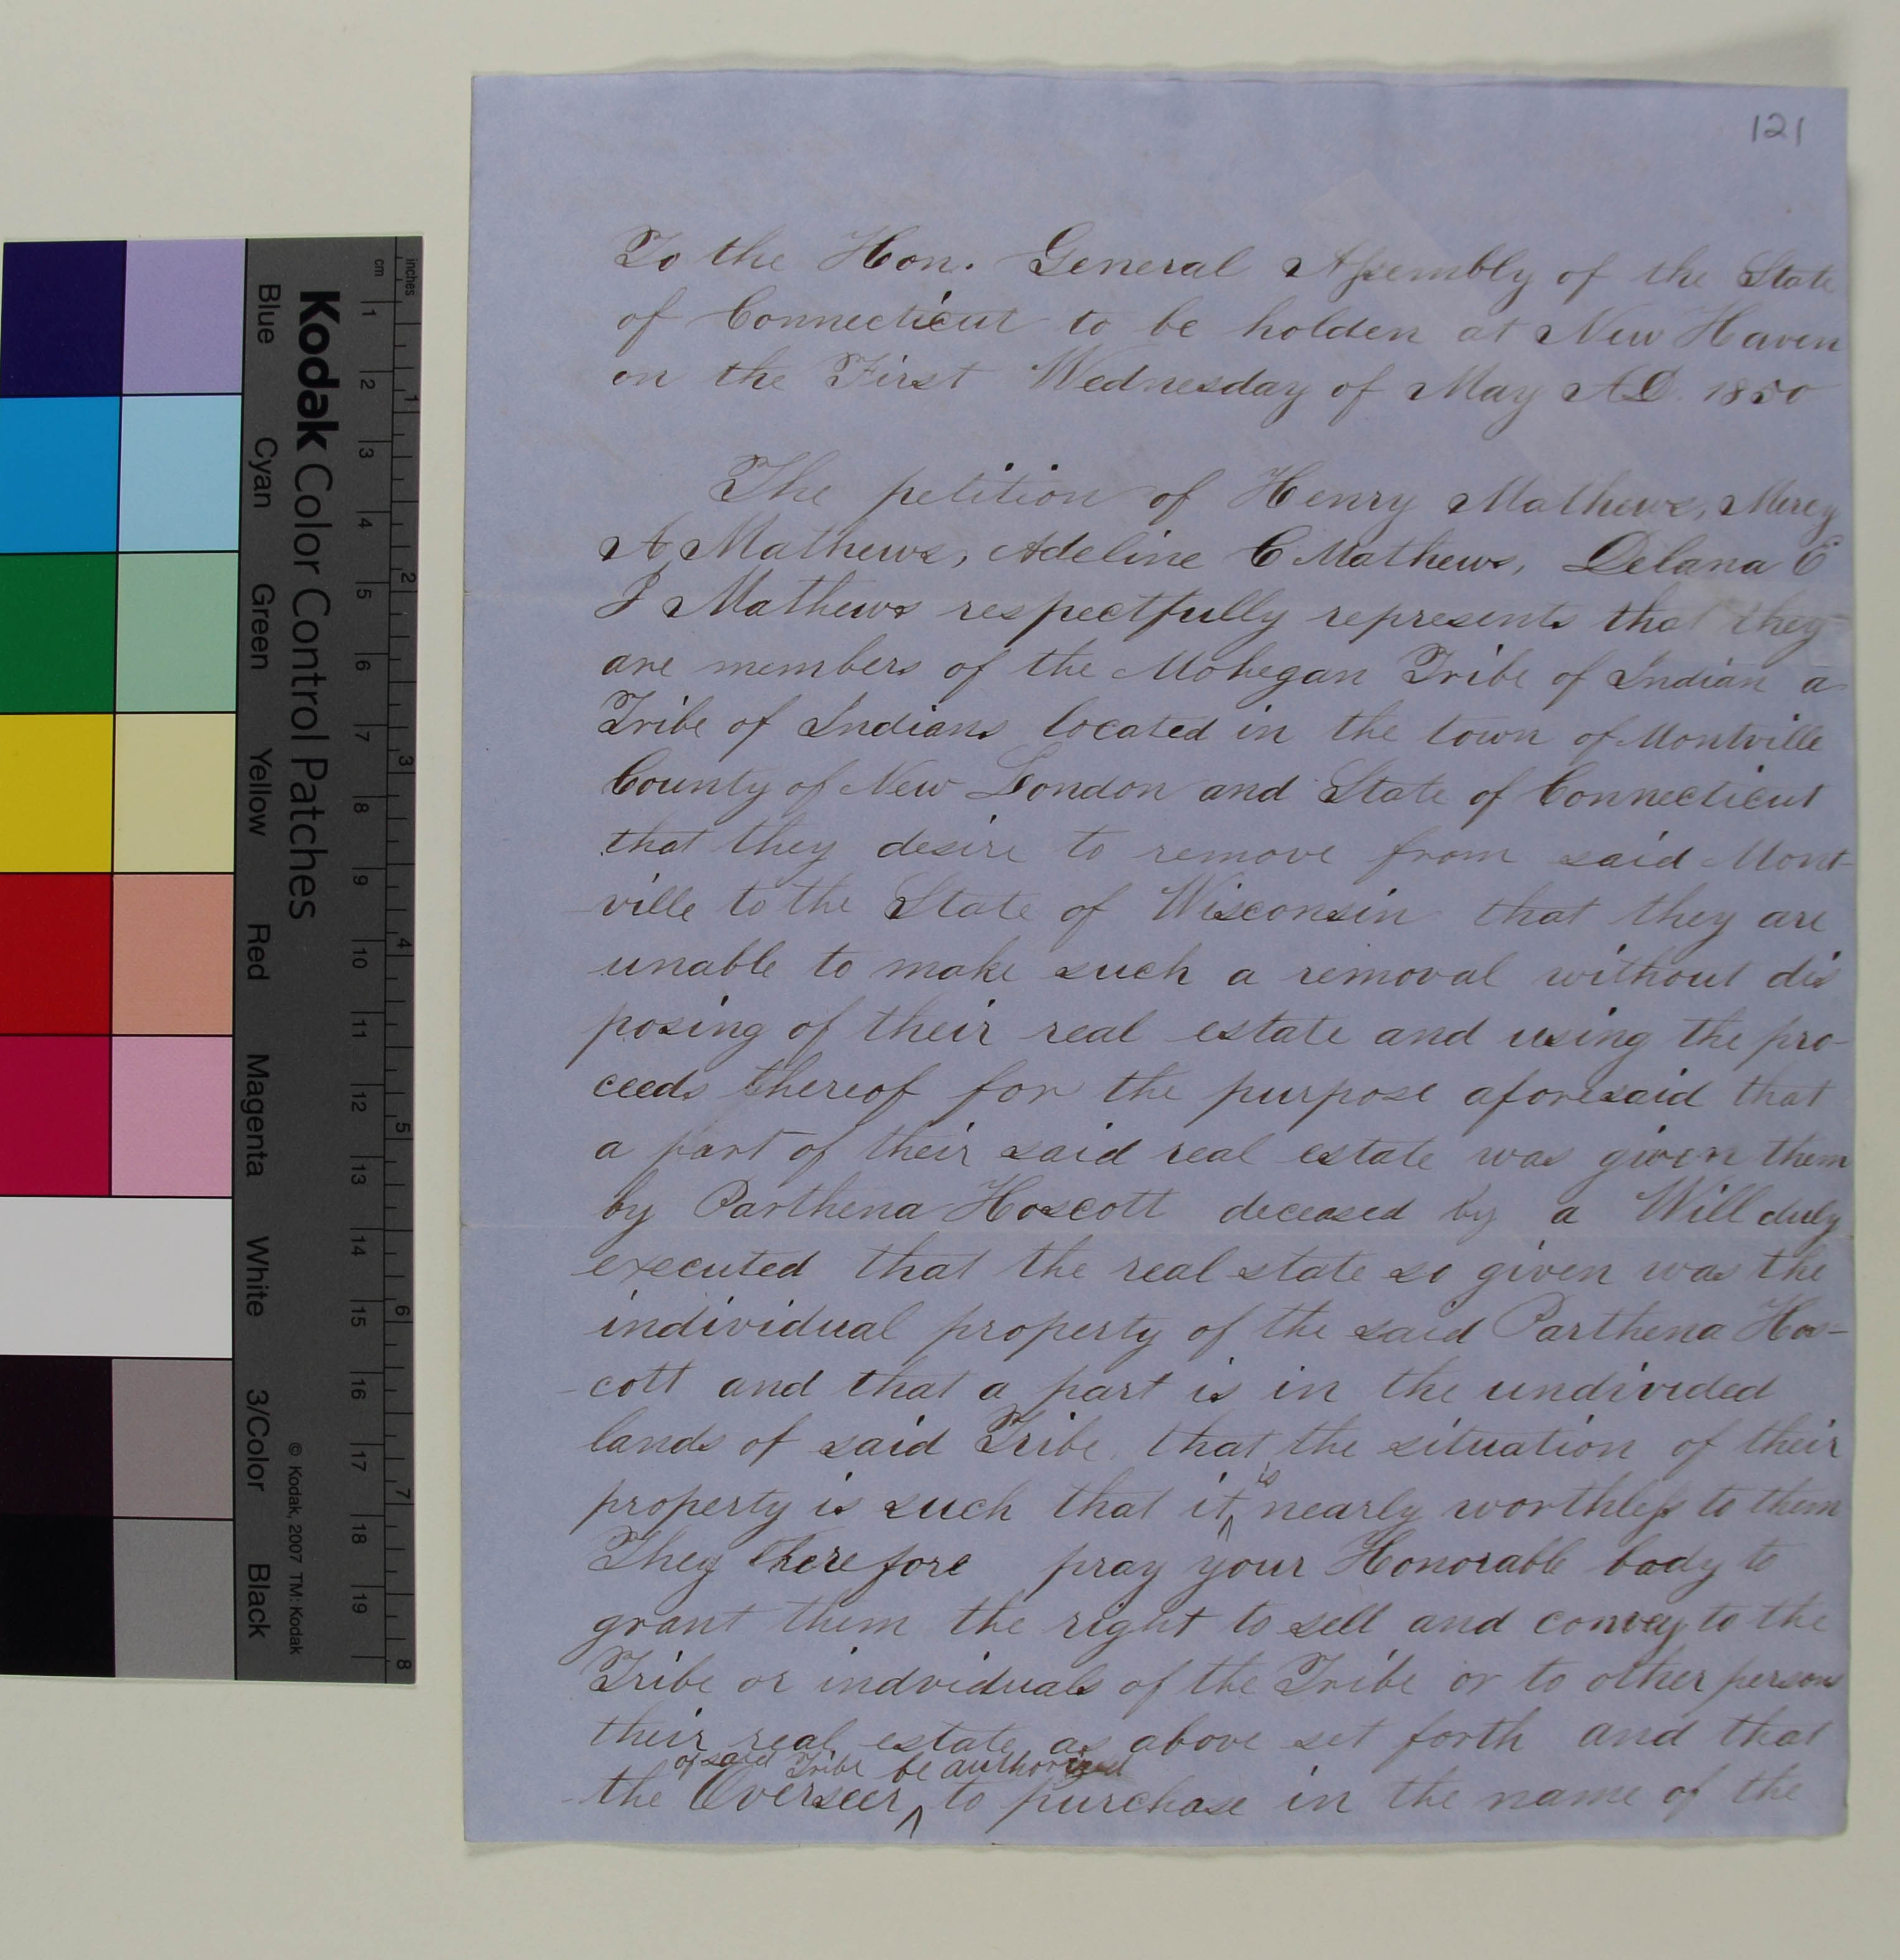 121
To the Hon. General Assembly of the State
of Connecticut to be holden at New Haven
on the First Wednesday of May A.D. 1850
The petition of Henry Mathews, Mercy
A Mathews, Adeline C Mathews, Delana E
J Mathews respectfully represents that they
are members of the Mohegan Tribe of Indian a
Tribe of Indians located in the town of Montville
County of New London and State of Connecticut
that they desire to remove from said Mont-
ville to the State of Wisconsin that they are
unable to make such a removal without dis
posing of their real estate and using the pro-
ceeds thereof for the purpose aforesaid that
a part of their said real estate was given them
by Parthena Hoscott deceased by a Will duly
executed that the real state so given was the
individual property of the said Parthena Hos-
-cott and that a part is in the undivided
lands of said Tribe, that the situation of their
is
property is such that it ^ nearly worthless to them
They therefore pray your Honorable body to
grant them the right to sell and convey to the
Tribe or indviduals of the Tribe or to other persons
their real estate as above set forth and that
of said Tribe be authorized
the Overseer ^ to purchase in the name of the
Kodak Color Control Patches
Blue Cyan Green Yellow Red Magenta White 3/Color Black
© Kodak, 2007 TM: Kodak
cm 1 2 3 4 5 6 7 8 9 10 11 12 13 14 15 16 17 18 19
inches 1 2 3 4 5 6 7 8